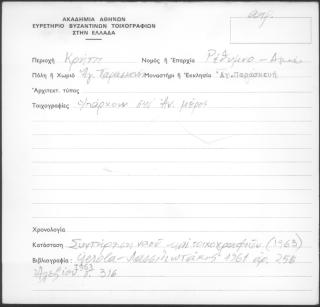 αρχ.
ΑΚΑΔΗΜΙΑ ΑΘΗΝΩΝ
ΕΥΡΕΤΗΡΙΟ ΒΥΖΑΝΤΙΝΩΝ ΤΟΙΧΟΓΡΑΦΙΩΝ
ΣΤΗΝ ΕΛΛΑΔΑ
Περιοχή Κρήτη Νομός ή Επαρχία Ρέθυμνο -
Πόλη ή Χωριό Αγ. Παρασκευή Μοναστήρι ή Εκκλησία Αγ. Παρασκευή
Αρχιτεκτ. τύπος
Τοιχογραφίες υπάρχουν στο Αν. μέρος
Χρονολογία
Κατάσταση Συντήρηση ναού και τοιχογραφιών (1963)
Βιβλιογραφία: Gerola - Λασσιθιωτάκης 1961 αρ. 256
1963 σ. 316